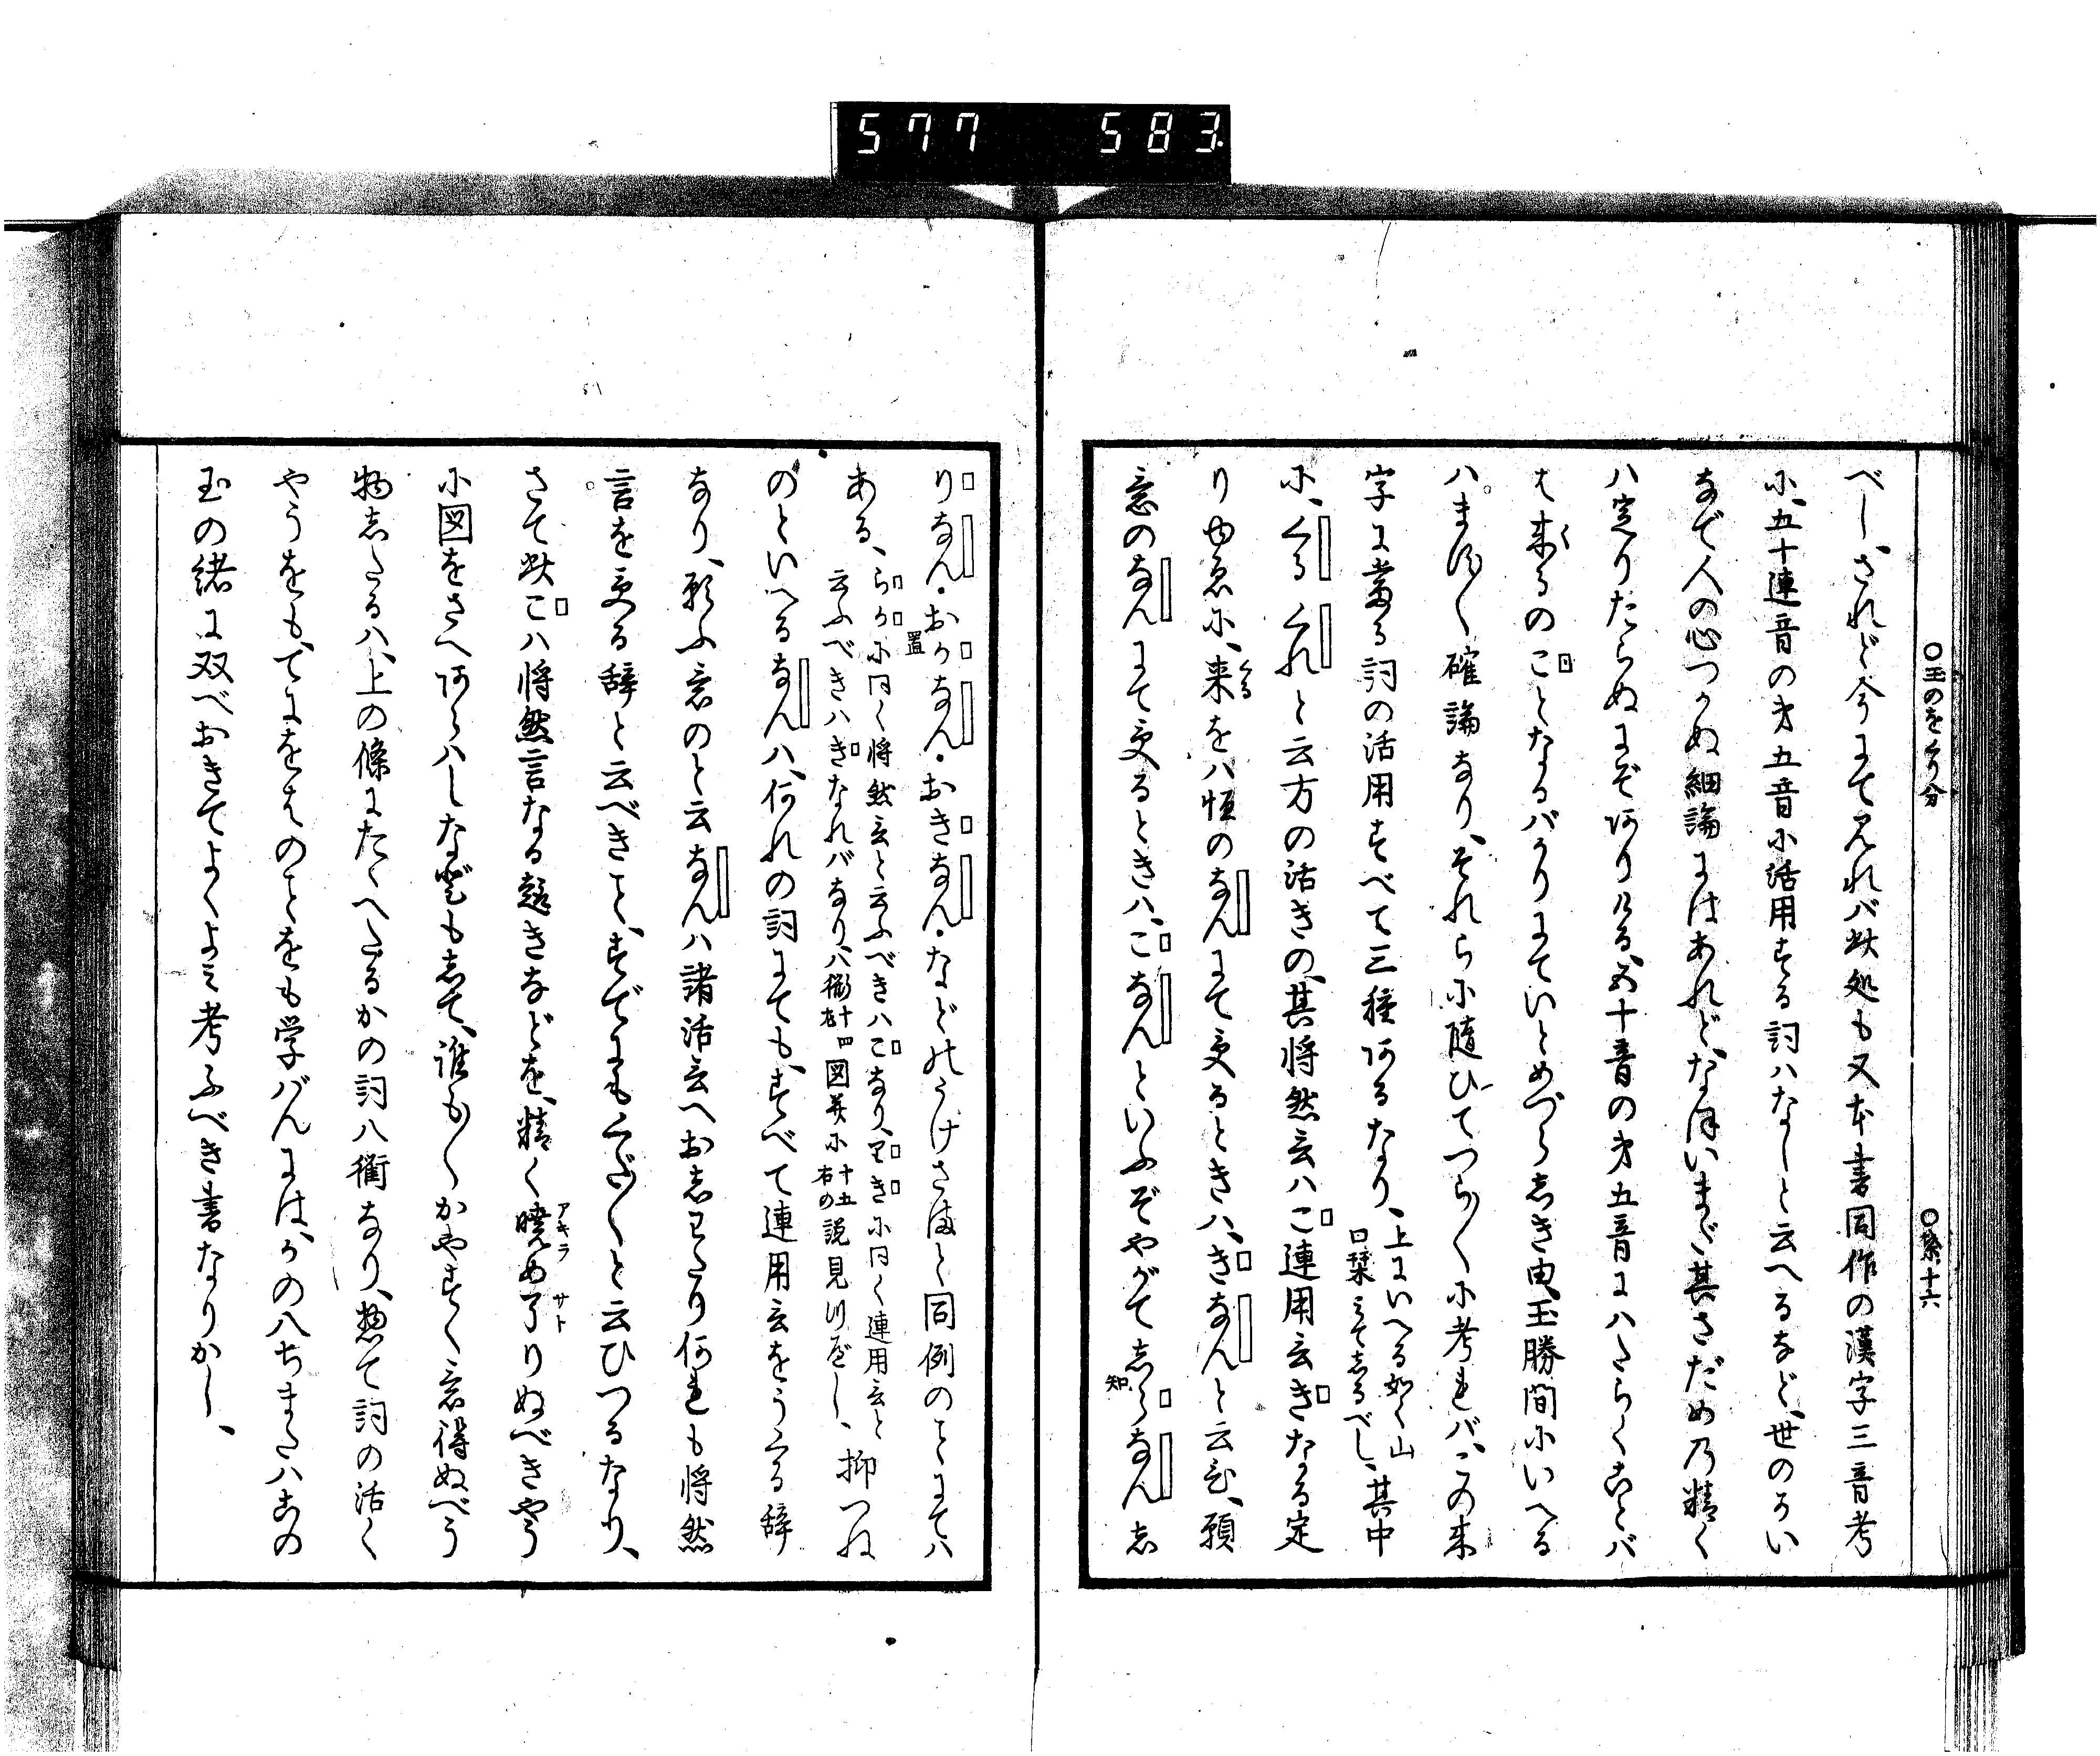 577 583
○玉のをくり分 ○糸十六
べし、されど今にて见れバ此処も又本書同作の漢字三音考
に、五十連音の才五音に活用する詞ハなしと云へるなど、世のうい
なで人の心つかぬ細論にはあれど、なほいまだ其さだめ乃精く
ハ足りたらぬにぞありける、五十音の才五音にハたらくことバ
は来るのことなるバかりにていとめづらしき由、玉勝間にいへる
ハまた〱確論なり、それらに随ひてつら〱に考れバ、この来
字に当る詞の活用すべて三種あるなり、上にいへる如く山口栞にてしるべし、其中
に、くるくれと云方の活きの、其将然言ハこ連用言きなる定
りゆゑに、来をハ恒のなんにて受るときハ、きなんと云ひ、願
意のなんにて受るときハ、こなんといふぞやがてしらなんし
りなん・おかなん・おきなん・などのうけさまと同例のことにてハ
ある、らかに同く将然言と云ふべきハこなり、りきに同く連用言と
云ふべきハきなれバなり、八衢十四右図并に十五右の説見つべし、抑つね
のといへるなんハ、何れの詞にても、すべて連用言をうくる辞
なり、願ふ意のと云なんハ諸活言へおしわたり何れも将然
言を受る辞と云べきこと、すでにもくだ〱と云ひつるなり、
さて此こハ将然言なる趣きなどを、精く暁め了りぬべきやう
に図をさへあらハしなどもして、誰も〱かやすく意得ぬべう
物したるハ、上の條にたゝへたるかの詞八衢なり、惣て詞の活く
やうをも、てにをはのことをも学バんには、かの八ちまたハこの
玉の緒に双べおきてよくよみ考ふべき書なりかし、